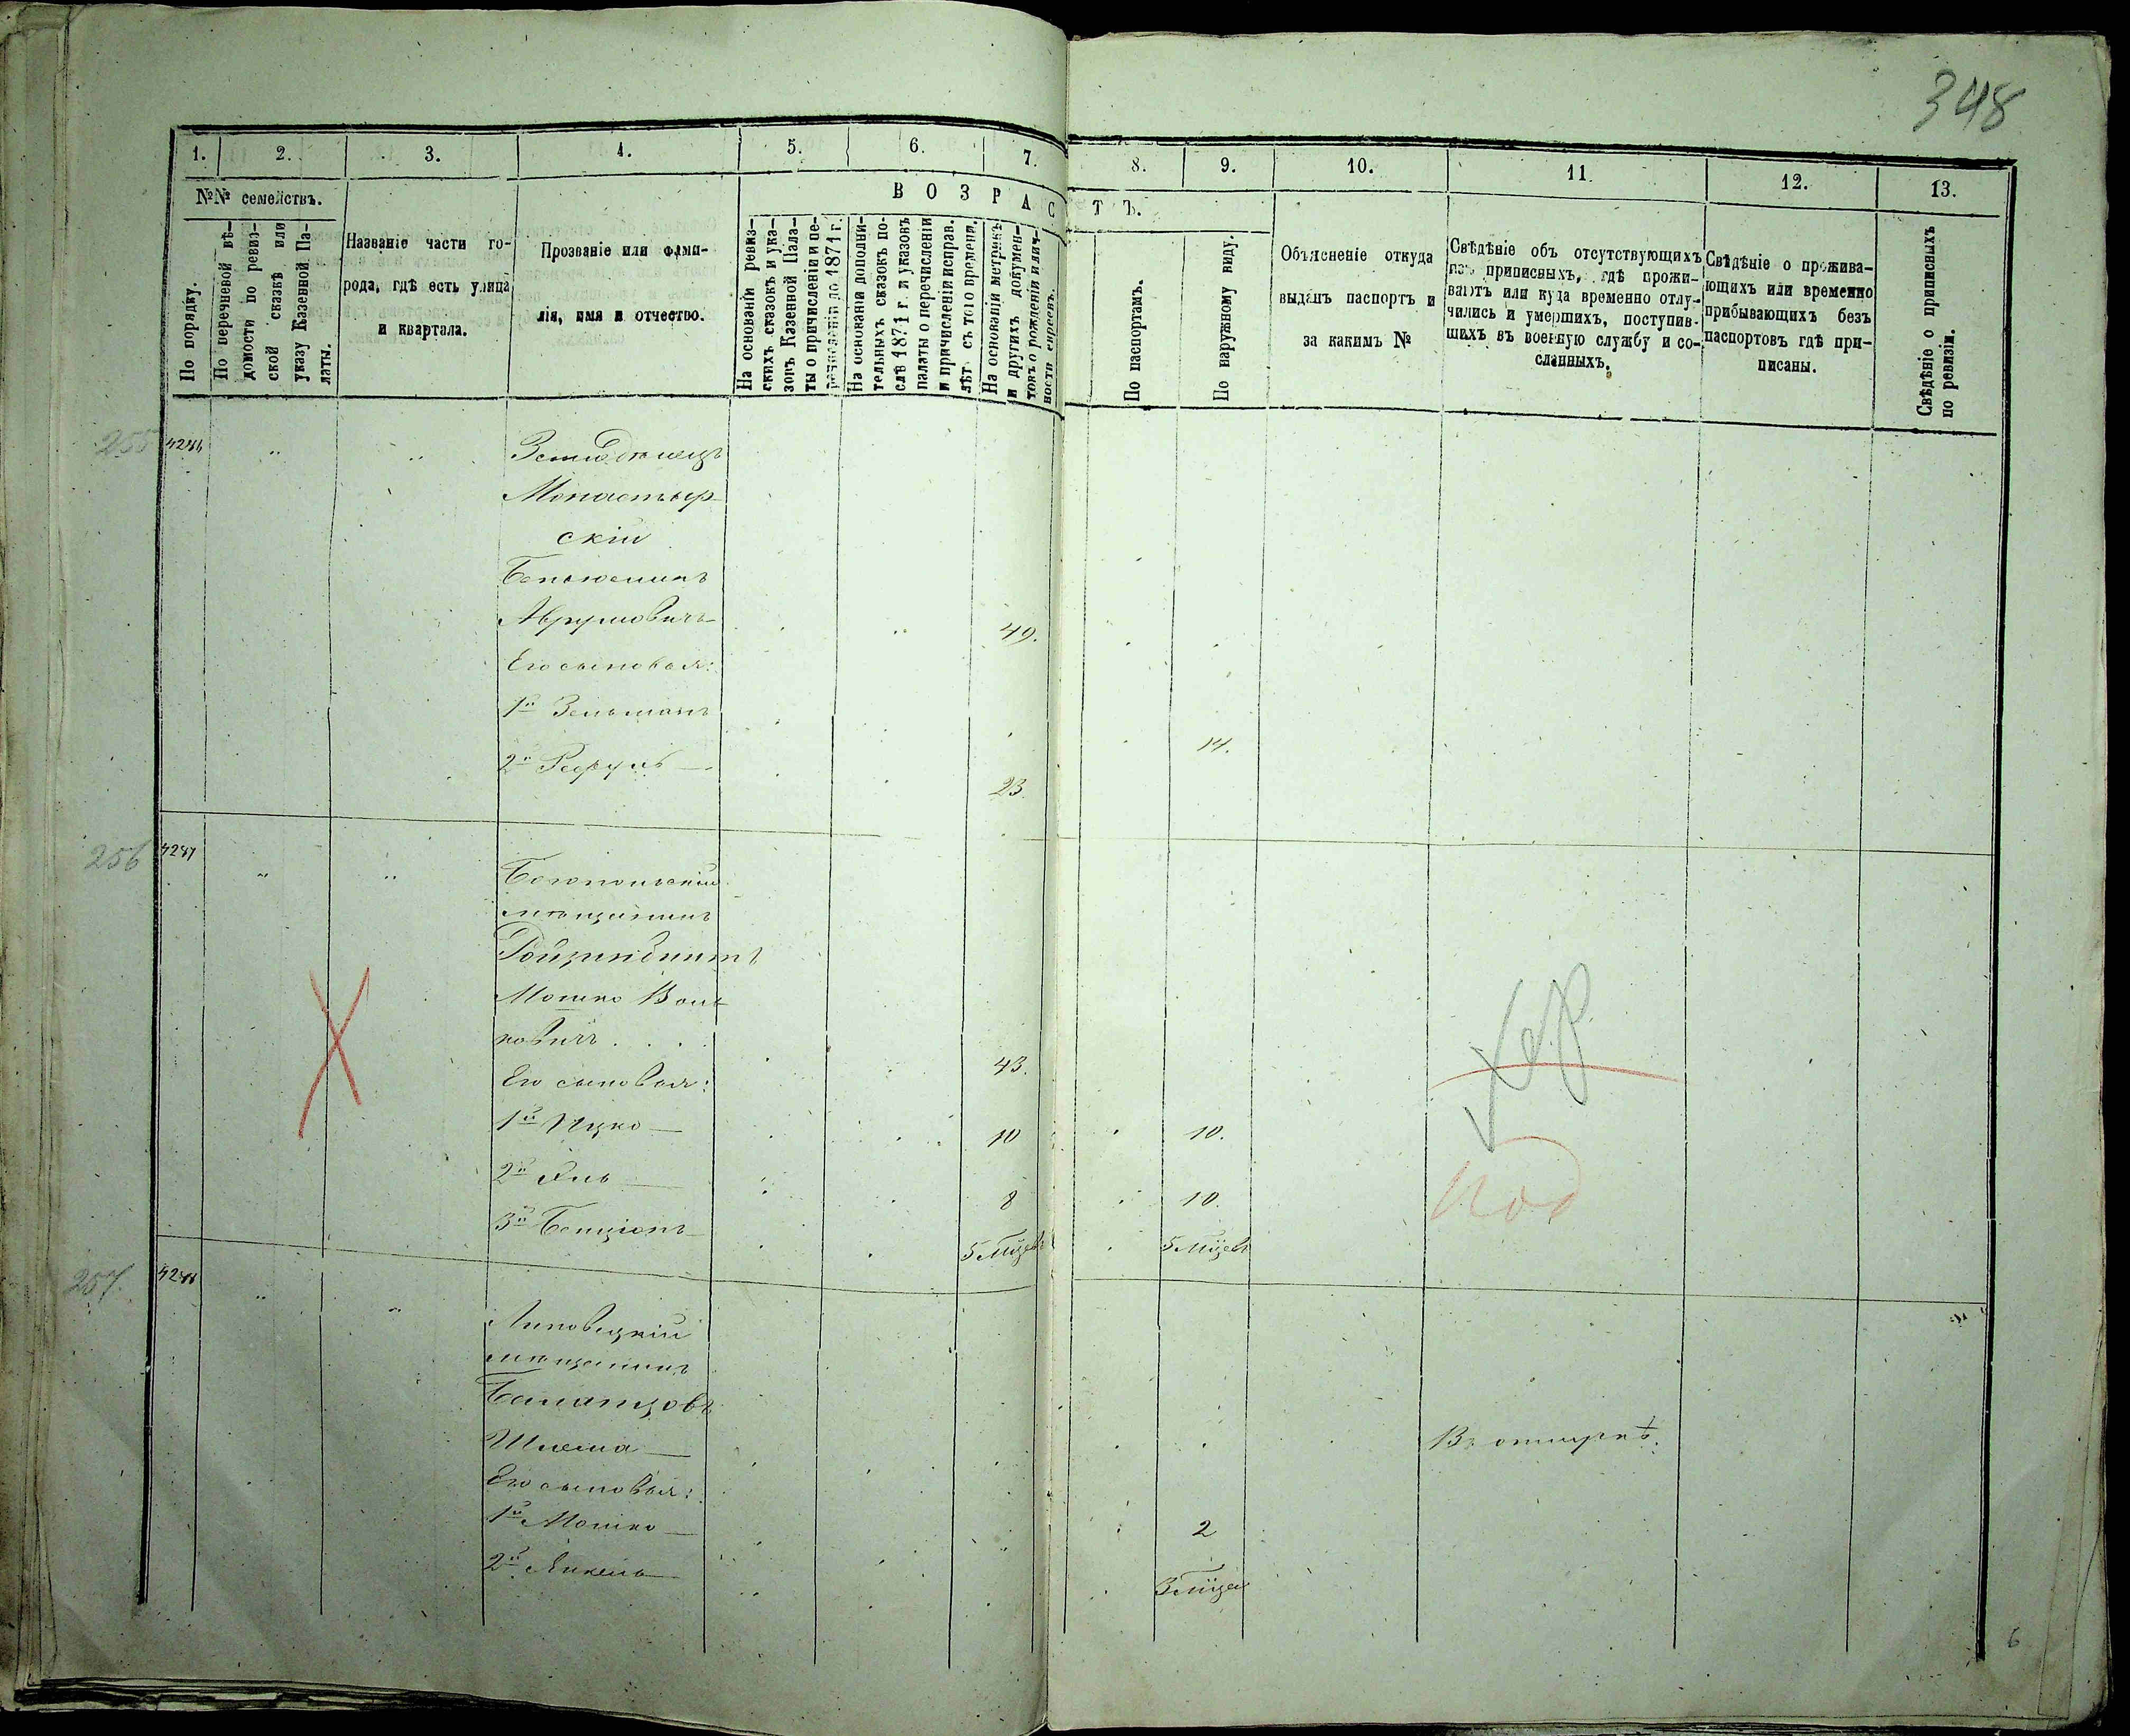 348
1. 2. 3. 4. 5. 6. 7. 8. 9. 10. 11. 12. 13.
№№ семействъ.
ВОЗРАСТЪ.
По порядку.
По перечневой вѣ-
домости по ревиз-
ской сказкѣ или
указу Казенной Па-
латы.
Названіе части го-
рода, гдѣ есть улица
и квартала.
Прозваніе или фами-
лія, имя и отчество.
На основаніи ревиз-
скихъ сказокъ и ука-
зовъ Казенной Пала-
ты о причисленіи и пе-
речисленіи до 1871 г.
На основаніи дополни-
тельныхъ сказокъ по-
слѣ 1871 г. и указовъ
палаты о перечисленіи
и причисленіи исправ.
лѣт. съ того времени.
На основаніи метрикъ
и другихъ докумен-
товъ о рожденіи и лич-
ности евреевъ.
По паспортамъ.
По наружному виду.
Объясненіе откуда
выданъ паспортъ и
за какимъ №
Свѣдѣніе объ отсутствующихъ
изъ приписныхъ, гдѣ прожи-
ваютъ или куда временно отлу-
чились и умершихъ, поступив-
шихъ въ военную службу и со-
сланныхъ.
Свѣдѣніе о прожива-
ющихъ или временно
прибывающихъ безъ
паспортовъ гдѣ при-
писаны.
Свѣдѣніе о приписныхъ
по ревизіи.
255 4286
Монастыр-
скій
Беньюминъ
Абрумовичъ 49.
Его сыновья:
1й Зельманъ 14.
2й Рефуль 23
256 4287
Богопольскій
мѣщанинъ
Ройзенблитъ
Мошко Воль-
ковичъ 43.
Его сыновья:
1й Ицко 10 10.
2й Эль 8 10.
3й Бенціонъ 5 мѣцевъ 5 мѣцевъ
Хер
под
257. 4288
Липовецкій
мѣщанинъ
Шлема
Его сыновья:
1й Мошко 2
2й Янкель 3 мѣцев
6